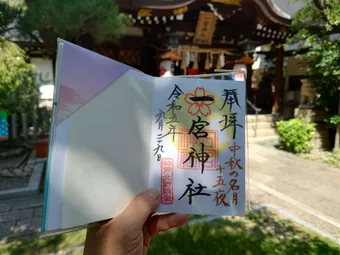 奉拝
中秋の名月
十五夜
一宮神社
令和五年
九月二十九日